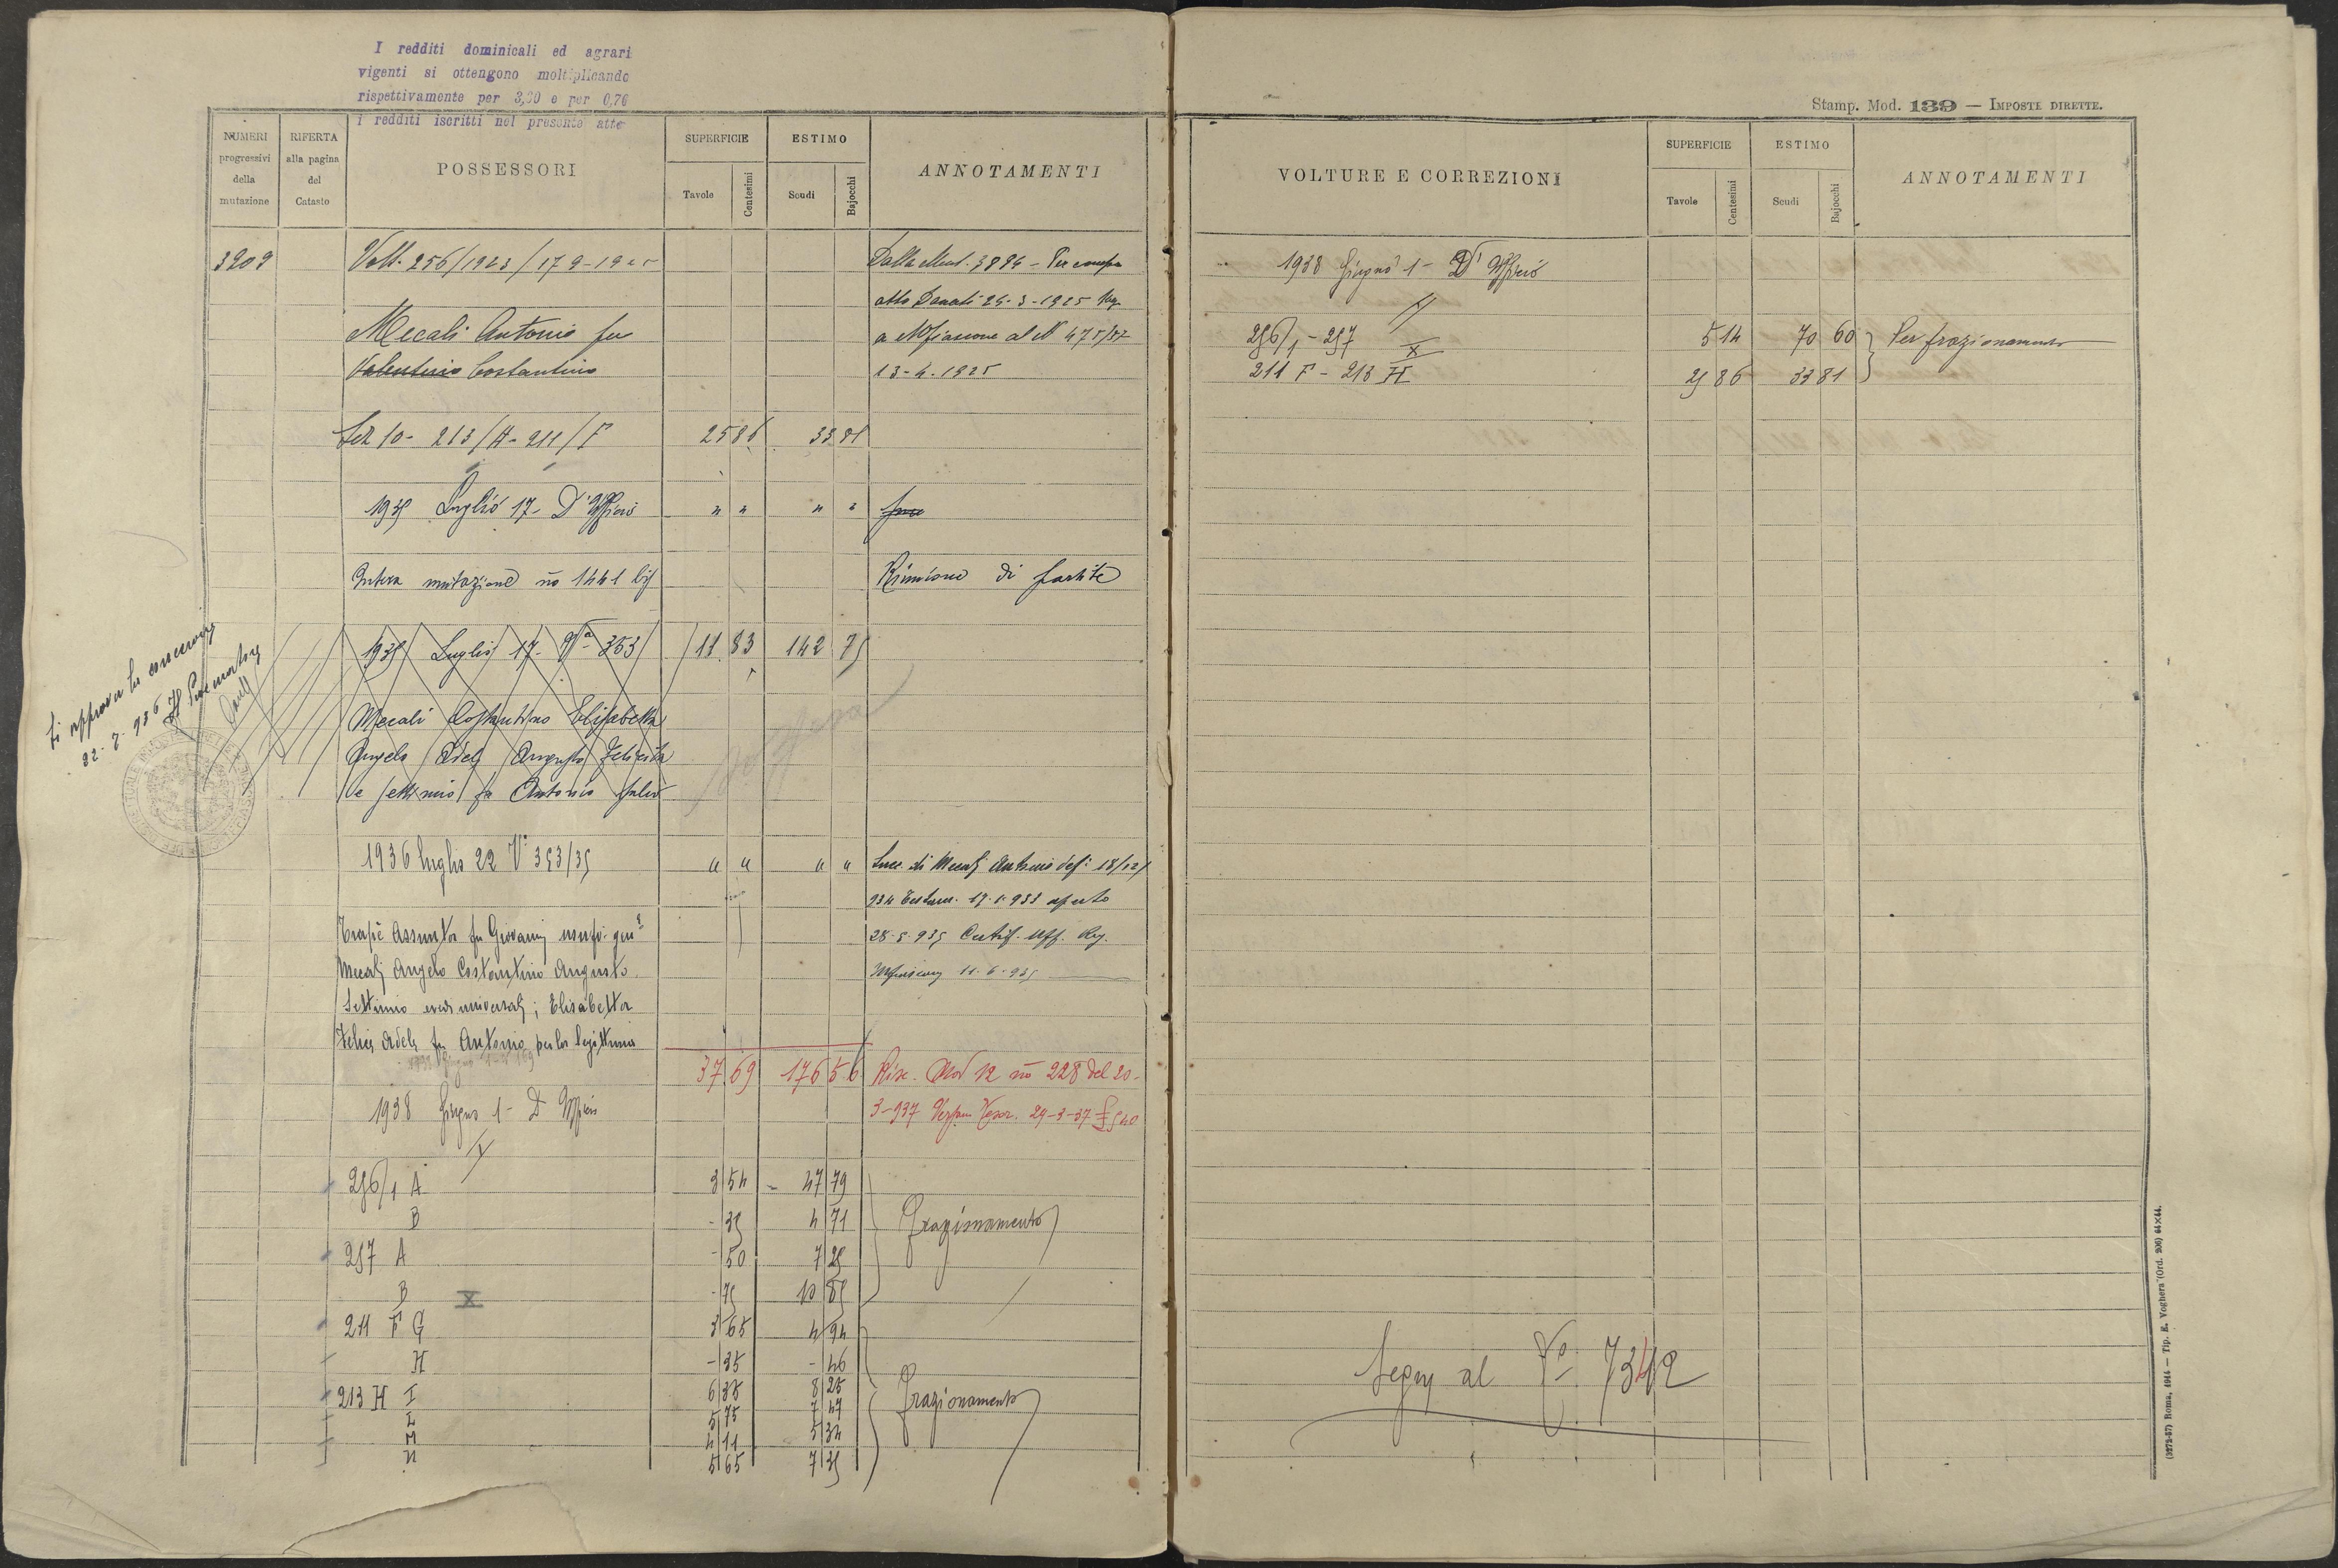 I redditi dominicali ed agrari
vigenti si ottengono moltiplicando
rispettivamente per 3,30 e per 0,70
i redditi iscritti nel presente atto
Stamp. Mod. 139 — IMPOSTE DIRETTE.
NUMERI progressivi della mutazione
RIFERTA alla pagina del Catasto
POSSESSORI
SUPERFICIE
Tavole
Centesimi
ESTIMO
Scudi
Bajocchi
ANNOTAMENTI
3909 Volt. 256/1923/17 9-1925 Dalla Mut. 3894 - Per compra
atto Donati 24-3-1925 Reg.
Mecali Antonio fu a Mfiascone al N 475/57
Valentino Costantino 13-4-1925
Sez 10 - 213/H - 211/F 25 86 33 81
1935 Luglio 17 - D'Ufficio " " " "
Intera mutazione no 1441 bis Riunione di partite
1935 Luglio 17 - Va 353 11 83 142 75
Mecali Costantino Elisabetta
Angelo Adele Augusto Felicita
e Settimio fu Antonio
Si approva la
22-7-936
1936 luglio 22 V 353/35 " " " " Succ. di Mecali Antonio def: 18/12/
934 Testam. 17-1-933 aperto
Assunta fu Giovanni usuf. gen 28-5-935 Certif. Uff. Reg.
Mecali Angelo Costantino Augusto Mfiascone 11-6-935
Settimio eredi universali; Elisabetta
Felice Adele fu Antonio per la legittima
37 69 176 56 Risc. Mod 12 no 228 del 20-
1938 Giugno 1 - D'Ufficio 3-937 Versam Tesor. 24-3-37 £ 540
256/1 A 3 54 47 79
B - 35 4 71 Frazionamento
257 A - 50 7 25
B - 75 10 85
X
211 F G 3 65 4 94
H - 35 - 46
213 H I 6 35 8 25 Frazionamento
L 5 75 7 47
M 4 11 5 34
N 5 65 7 35
VOLTURE E CORREZIONI
SUPERFICIE
Tavole
Centesimi
ESTIMO
Scudi
Bajocchi
ANNOTAMENTI
1938 Giugno 1 - D'Ufficio
256/1 - 257 5 14 70 60 Per frazionamento
X
211 F - 213 H 25 86 33 81
Segue al No. 7342
(3272-57) Roma, 1914 — Tip. E. Voghera (Ord. 206) 64×44.